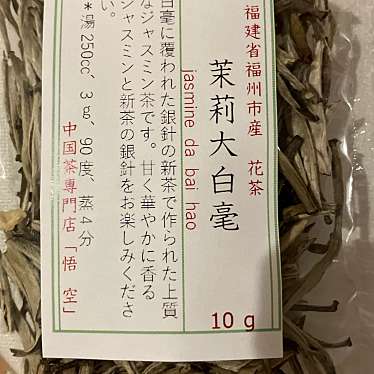 福建省福州市産 花茶
茉莉大白毫
jasmine da bai hao
10 g
白毫に覆われた銀針の新茶で作られた上質
なジャスミン茶です。甘く華やかに香る
ジャスミンと新茶の銀針をお楽しみくださ
い。
*湯250cc、3g、90度、蒸4分
中国茶専門店「悟空」